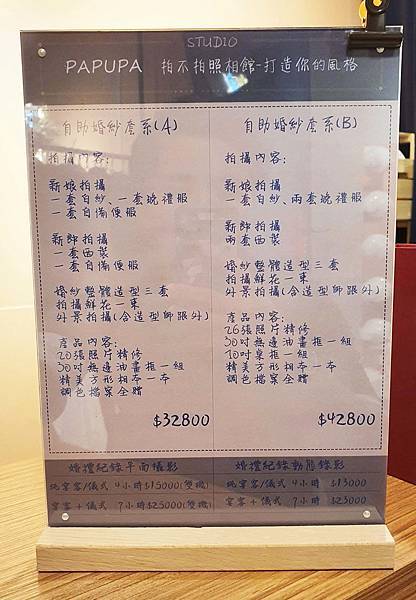 STUDIO
PAPUPA 拍不拍照相館-打造你的風格
自助婚紗套系(A)
拍攝內容:
新娘拍攝
一套白紗、一套晚禮服
一套自備便服
新郎拍攝
一套西裝
一套自備便服
婚紗整體造型三套
拍攝鮮花一束
外景拍攝(含造型師跟外)
產品內容:
20張照片精修
30吋無邊油畫框一組
精美方形相本一本
調色檔案全贈
$32800
自助婚紗套系(B)
拍攝內容:
新娘拍攝
一套白紗、兩套晚禮服
新郎拍攝
兩套西裝
婚紗整體造型三套
拍攝鮮花一束
外景拍攝(含造型師跟外)
產品內容:
26張照片精修
30吋無邊油畫框一組
10吋桌框一組
精美方形相本一本
調色檔案全贈
$42800
婚禮紀錄平面攝影
純宴客/儀式 4小時$15000(雙機)
宴客+儀式 7小時$25000(雙機)
婚禮紀錄動態錄影
純宴客/儀式 4小時 $13000
宴客+儀式 7小時 $23000